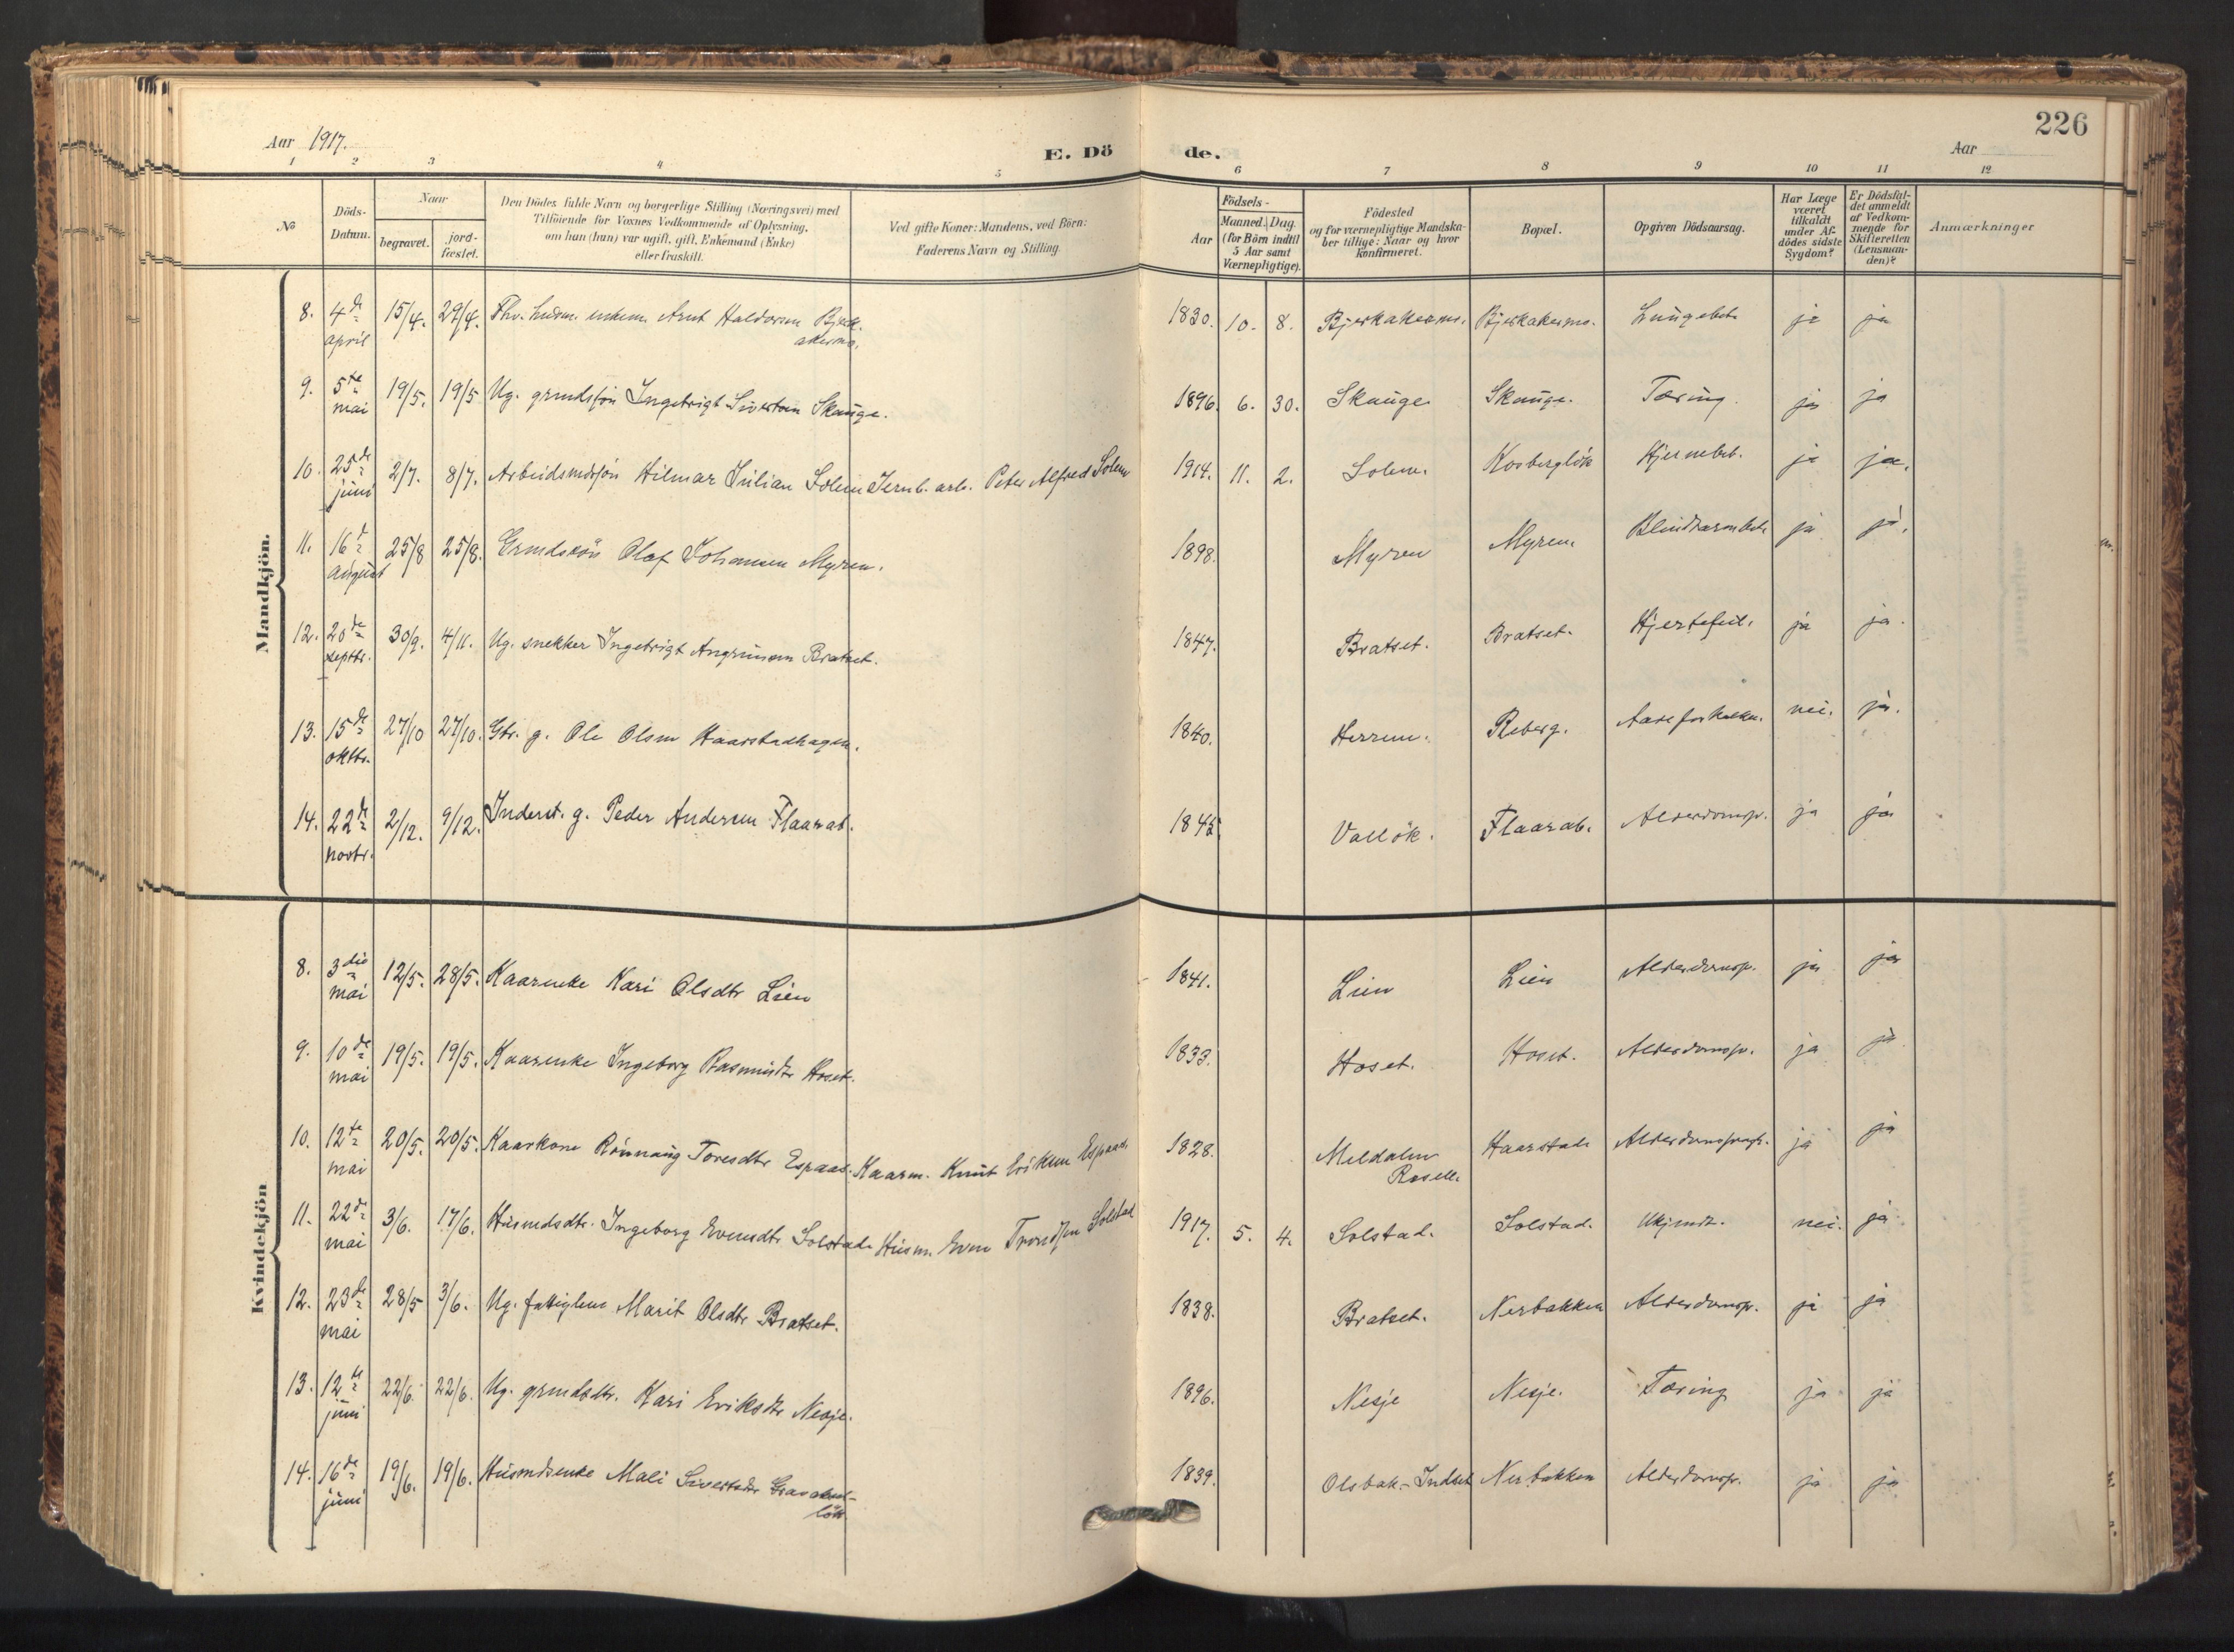 226
Aar 1917.
E. Dö de.
Aar
1 2 3 4 5 6 7 8 9 10 11 12
№
Döds-
Datum.
Naar
begravet.
jord-
fæstet.
Den Dödes fulde Navn og borgerlige Stilling (Næringsvei) med
Tilföiende for Voxnes Vedkommende af Oplysning,
om han (hun) var ugift, gift, Enkemand (Enke)
eller fraskilt.
Ved gifte Koner: Mandens, ved Börn:
Faderens Navn og Stilling.
Aar
Födsels-
Maaned. Dag.
(for Börn indtil
5 Aar samt
Værnepligtige).
Födested
og for værnepligtige Mandska-
ber tillige: Naar og hvor
konfirmeret.
Bopæl.
Opgiven Dödsaarsag.
Har Læge
været
tilkaldt
under Af-
dödes sidste
Sygdom?
Er Dödsfal-
det anmeldt
af Vedkom-
mende for
Skifteretten
(Lensman-
den)?
Anmærkninger
Mandkjön.
8. 4de april 15/4. 29/4. Fhv. husm. enkem. Arnt Haldorsen Bjerk-
akermo. 1830. 10. 8. Bjerkakermo. Bjerkakermo. Lungebet. ja ja
9. 5te mai 19/5. 19/5 Ug. grmdsøn Ingebrigt Sivertsen Skauge. 1896. 6. 30. Skauge. Skauge. Tæring. ja ja
10. 25de juni 2/7. 8/7. Arbeidsmdsøn Hilmar Julian Solem Jernb. arb. Peter Alfred Solem 1914. 11. 2. Solem. Kosberglök Hjernebet. ja ja.
11. 16de august 25/8 25/8. Grmdssön Olaf Johansen Myren. 1898. Myren Myren. Blindtarmbet. ja ja.
12. 20de septbr. 30/9. 4/11. Ug. snekker Ingebrigt Bratset. 1847. Bratset. Bratset. Hjertefeil. ja ja.
13. 15de oktbr. 27/10 27/10. g. Ole Olsen Haarstadhagen. 1840. Herrem. Reberg. Aareforkalkn. nei. ja.
14. 22de novbr. 2/12. 9/12. Inderst. g. Peder Andersen Flaarab. 1845. Vallök. Flaarab. Alderdomsp. ja ja
Kvindekjön
8. 3die mai 12/5. 28/5. Kaarenke Kari Olsdtr Lien 1841. Lien Lien Alderdomsp. ja ja
9. 10de mai 19/5. 19/5. Kaarenke Ingeborg Rasmusdtr Hoset. 1833. Hoset. Hoset. Alderdomsp. ja ja
10. 12te mai 20/5. 20/5. Kaarkone Rönnaug Toresdtr Espaas. Kaarm. Knut Eriksen Espaas. 1828. Meldalen
Haarstad Alderdomsp. ja ja
11. 22de mai 3/6. 17/6. Husmdsdtr. Ingeborg Evensdtr Solstad Husm. Even Trondsen Solstad 1917. 5. 4. Solstad. Solstad. Ukjendt. nei. ja
12. 23de mai 28/5 3/6. Ug. fattiglem Marit Olsdtr Bratset. 1838. Bratset. Nerbakken Alderdomsp. ja ja
13. 12te juni 22/6. 22/6. Ug. grmdsdtr. Kari Eriksdtr Nesje. 1896. Nesje Nesje. Tæring ja ja
14. 16de juni 19/6. 19/6. Husmdsenke Mali Sivertsdtr
1839. Olsbak-Indset Nerbakken Alderdomsp. ja ja